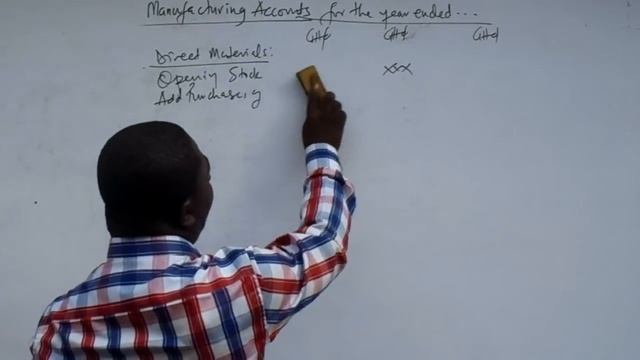 Manufacturing Accounts for the year ended...
GH¢ GH¢ GH¢
Direct Materials:
Opening Stock xxx
Add Purchases